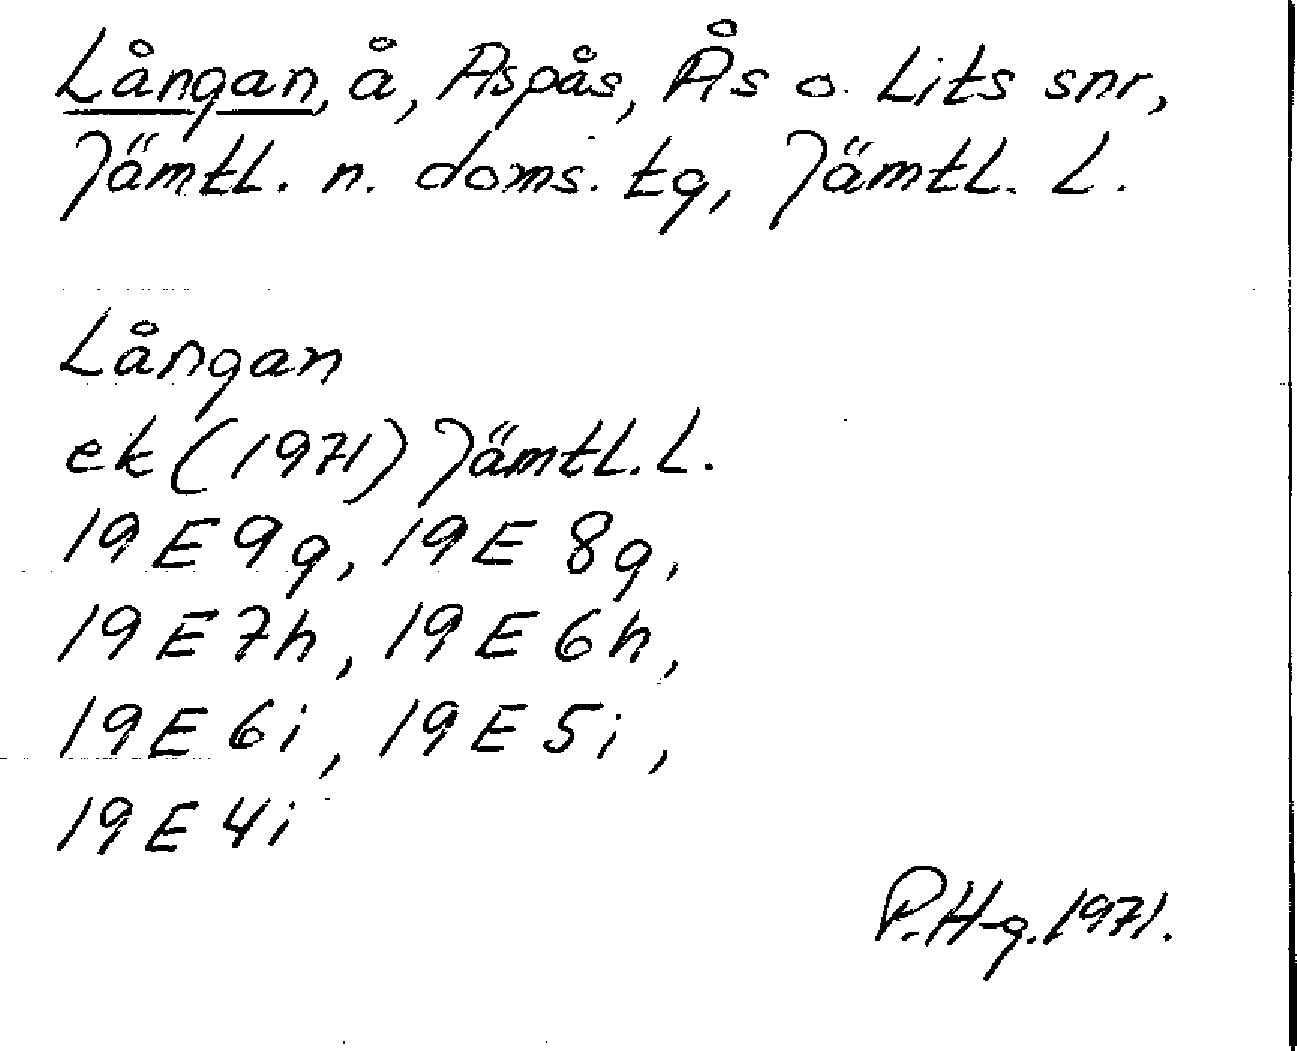 Långan, å, Aspås, Ås o. Lits snr,
Jämtl. n. doms. tg, Jämtl. L.
Långan
ek (1971) Jämtl. L.
19 E 9g, 19 E 8g,
19 E 7h, 19 E 6h,
19 E 6i, 19 E 5i,
19 E 4i
P. H-g. 1971.